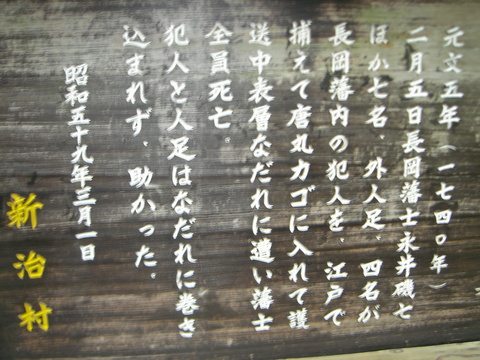 元文五年(一七四〇年)
二月五日長岡藩士永井磯七
ほか七名、外人足、四名が
長岡藩内の犯人を、江戸で
捕えて唐丸カゴに入れて護
送中表層なだれに遭い藩士
全員死亡。
犯人と人足はなだれに巻き
込まれず、助かった。
昭和五十九年三月一日
新治村